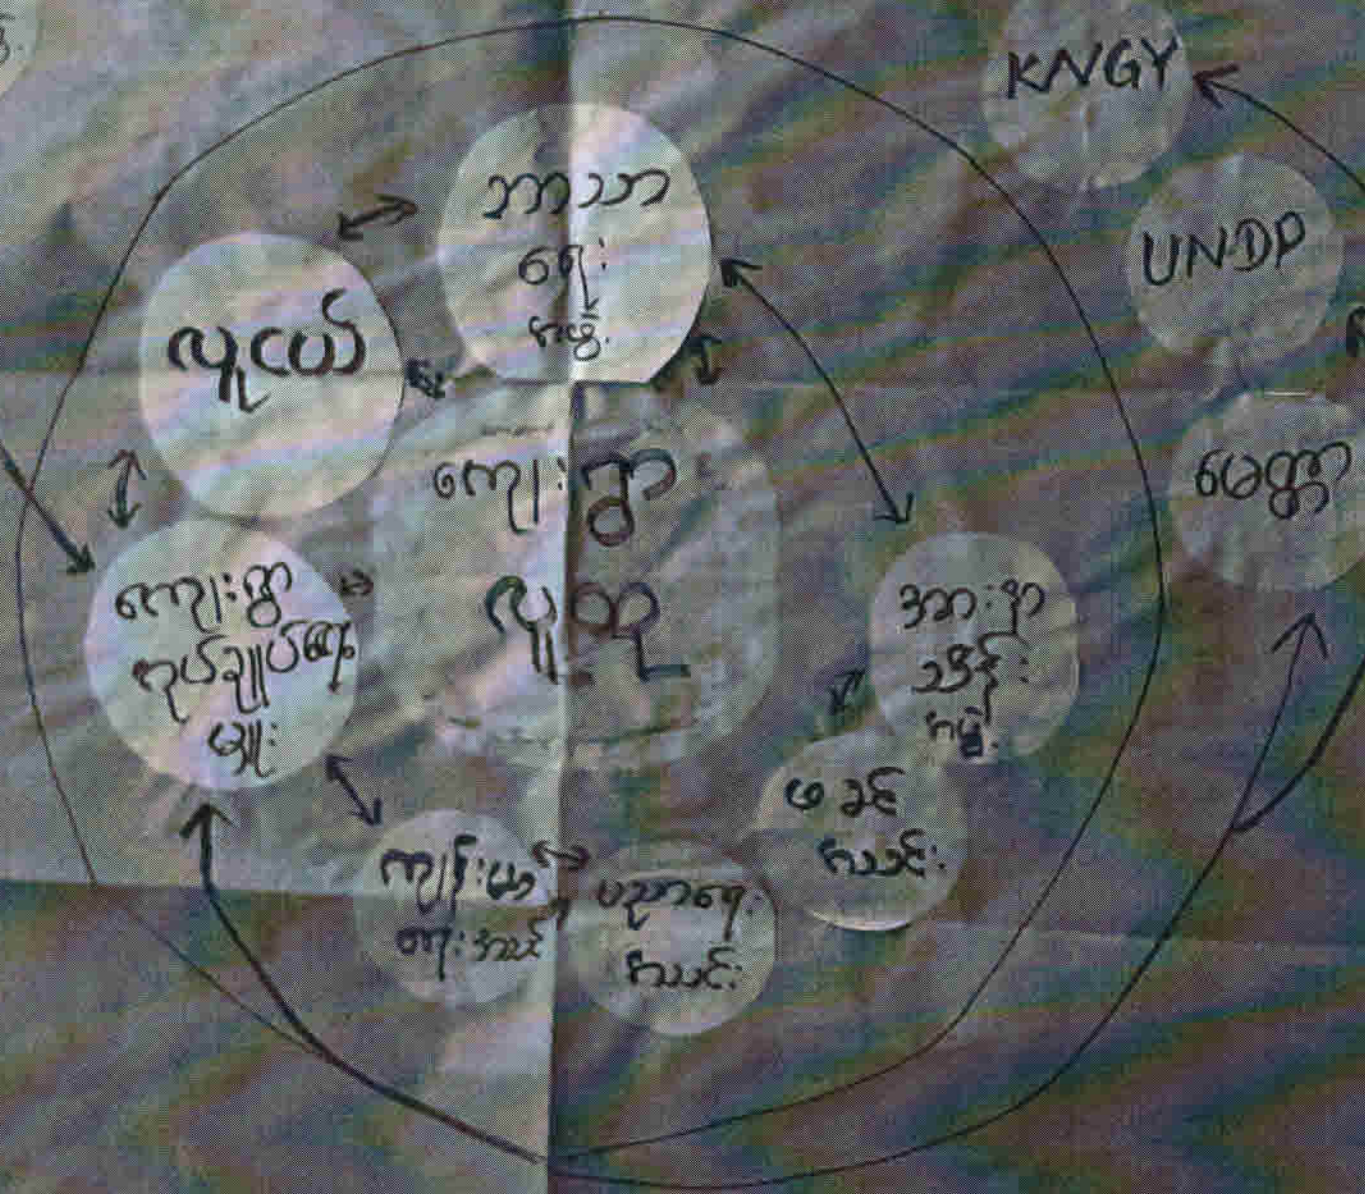 KNGY
UNDP
မေတ္တာ
ဘာသာ
ရေး
အဖွဲ့
လူငယ်
ကျေးရွာ
လူထု
ကျေးရွာ
အုပ်ချုပ်ရေး
မှူး
အားကစာ
အဖွဲ့
မိခင်
အသင်း
ကျန်းမာ
ရေးအသင်း
ပညာရေး
အသင်း